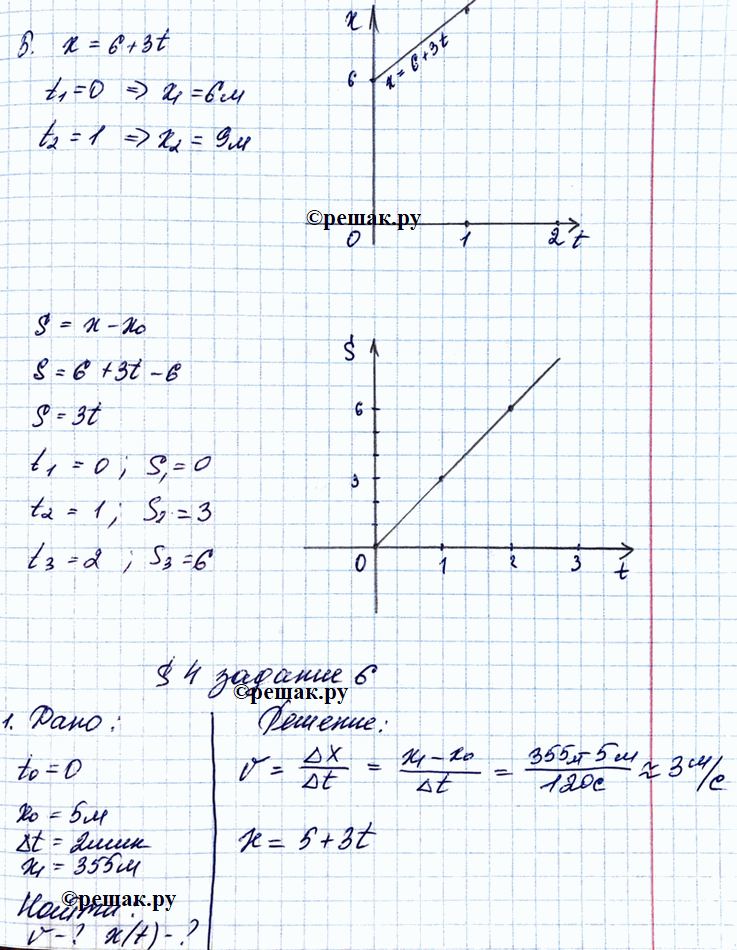 5. x = 6 + 3t
t₁ = 0 ⇒ x₁ = 6м
t₂ = 1 ⇒ x₂ = 9м
x
6
x = 6 + 3t
©решак.ру
0 1 2 t
S = x - x₀
S = 6 + 3t - 6
S = 3t
t₁ = 0 ; S₁ = 0
t₂ = 1 ; S₂ = 3
t₃ = 2 ; S₃ = 6
S
6
3
0 1 2 3 t
§ 4 задание 6
©решак.ру
1. Дано:
t₀ = 0
x₀ = 5м
Δt = 2мин
x₁ = 355м
©решак.ру
Найти:
v - ? x(t) - ?
Решение:
v = Δx/Δt = (x₁ - x₀)/Δt = (355м - 5м)/120с ≈ 3 м/с
x = 5 + 3t